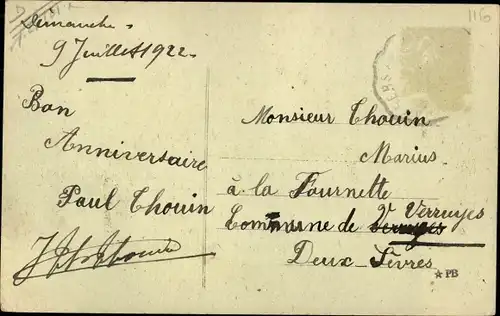 Demanche.
9 Juillet 1922.
Bon
Anniversaire
Paul Thouin
Monsieur Thouin
Marius
à la Fournette
Commune de Verruyes
Deux-Sèvres
★PB
116